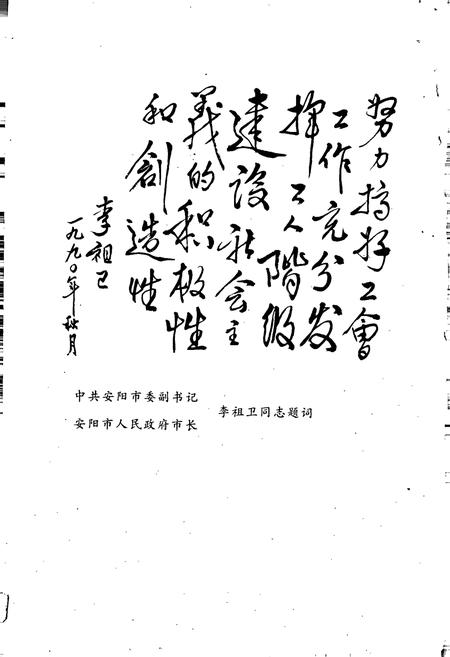 努力搞好工會
工作充分发
揮工人階级
建设社会主
義的积极性
和創造性
李祖卫
一九九〇年秋月
中共安阳市委副书记
安阳市人民政府市长
李祖卫同志题词